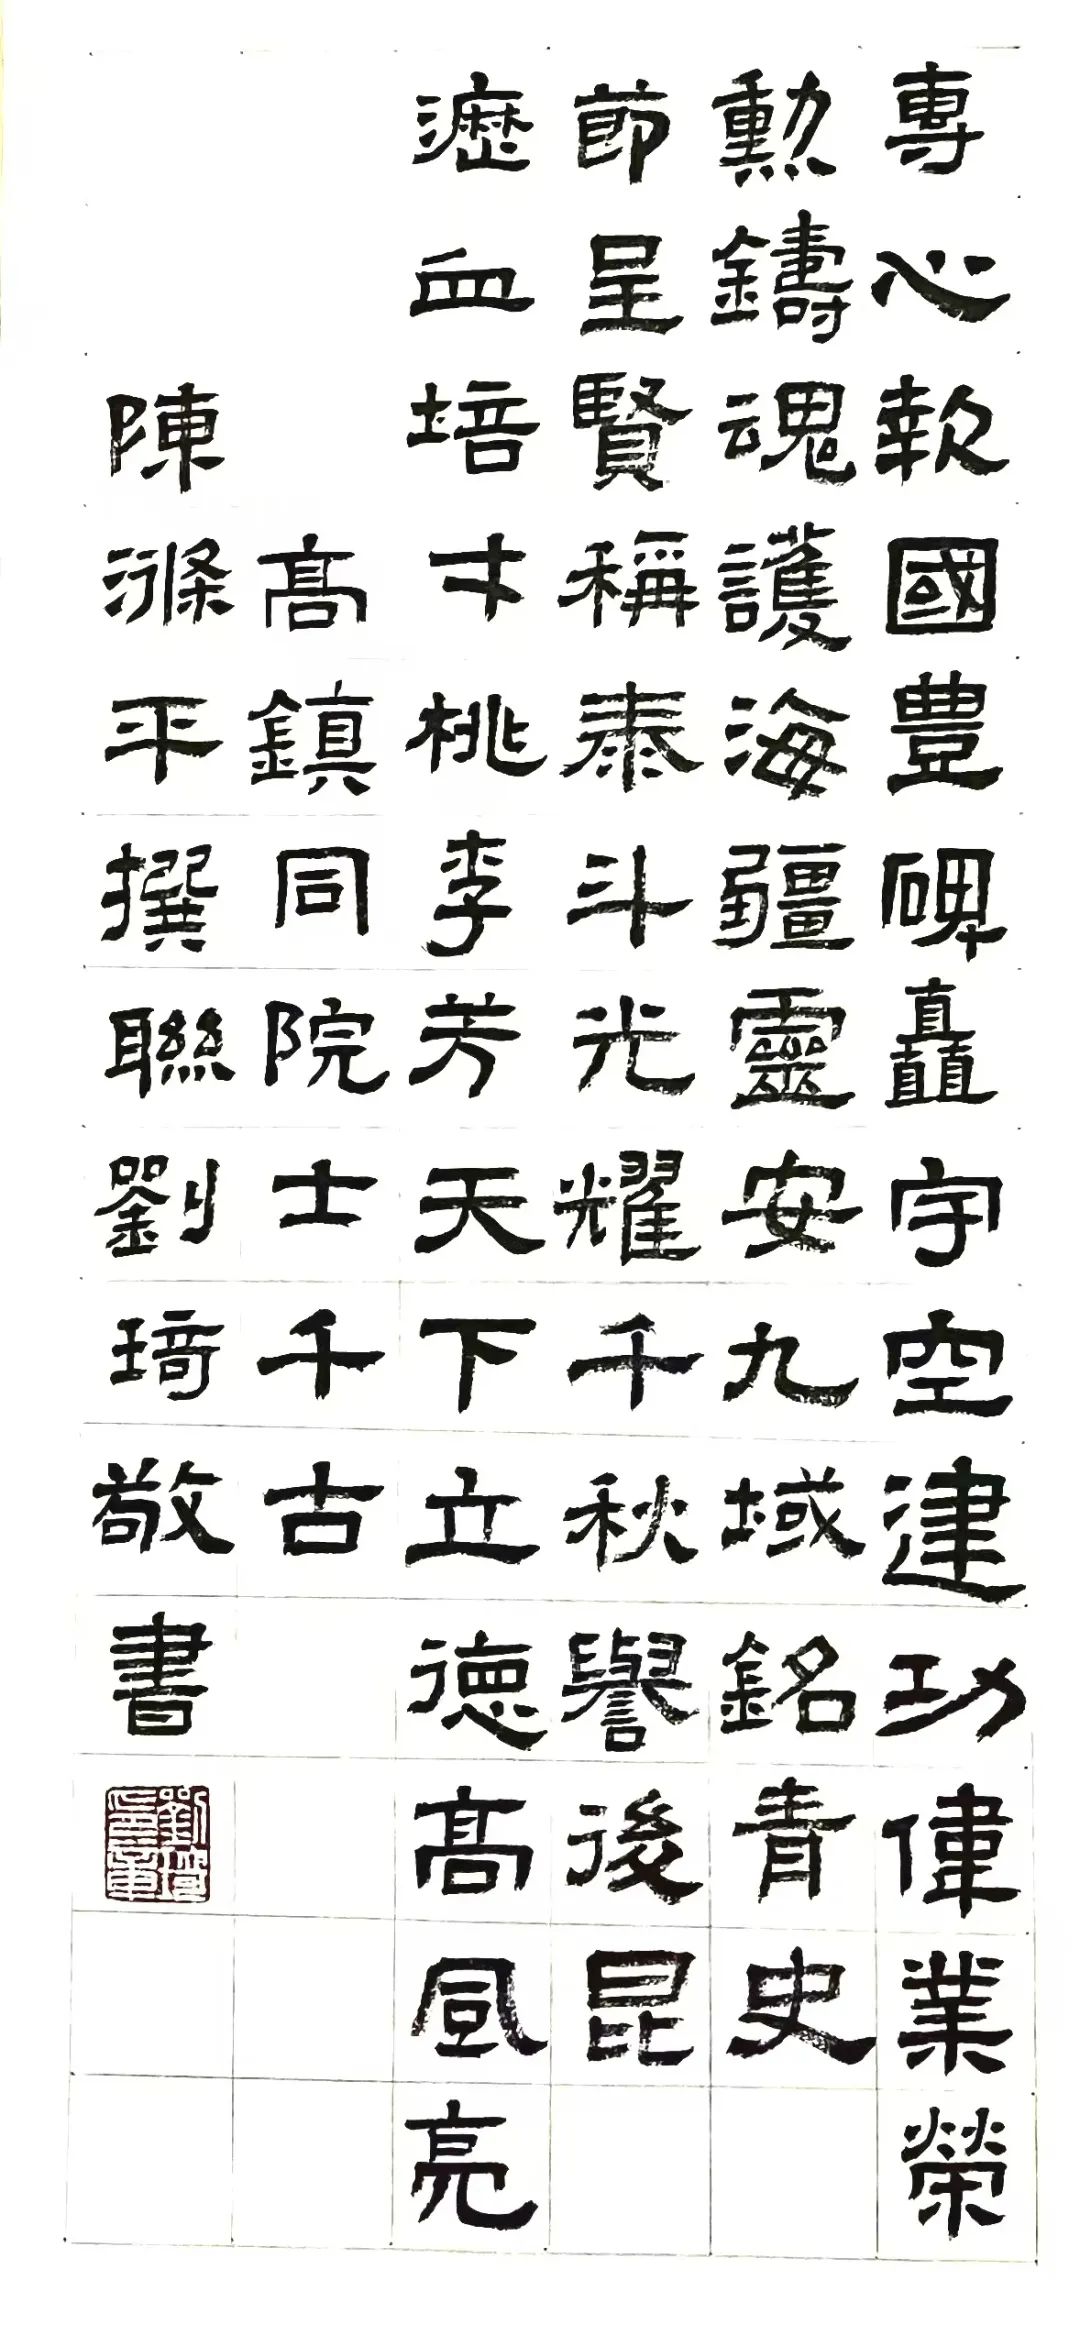 專心報國豊碑矗宇空建功偉業榮
勳鑄魂護海疆靈安九域銘青史
節呈賢稱泰斗光耀千秋譽後昆
瀝血培才桃李芳天下立德高風亮
高鎮同院士千古
陳滌平撰聯劉琦敬書
劉琦